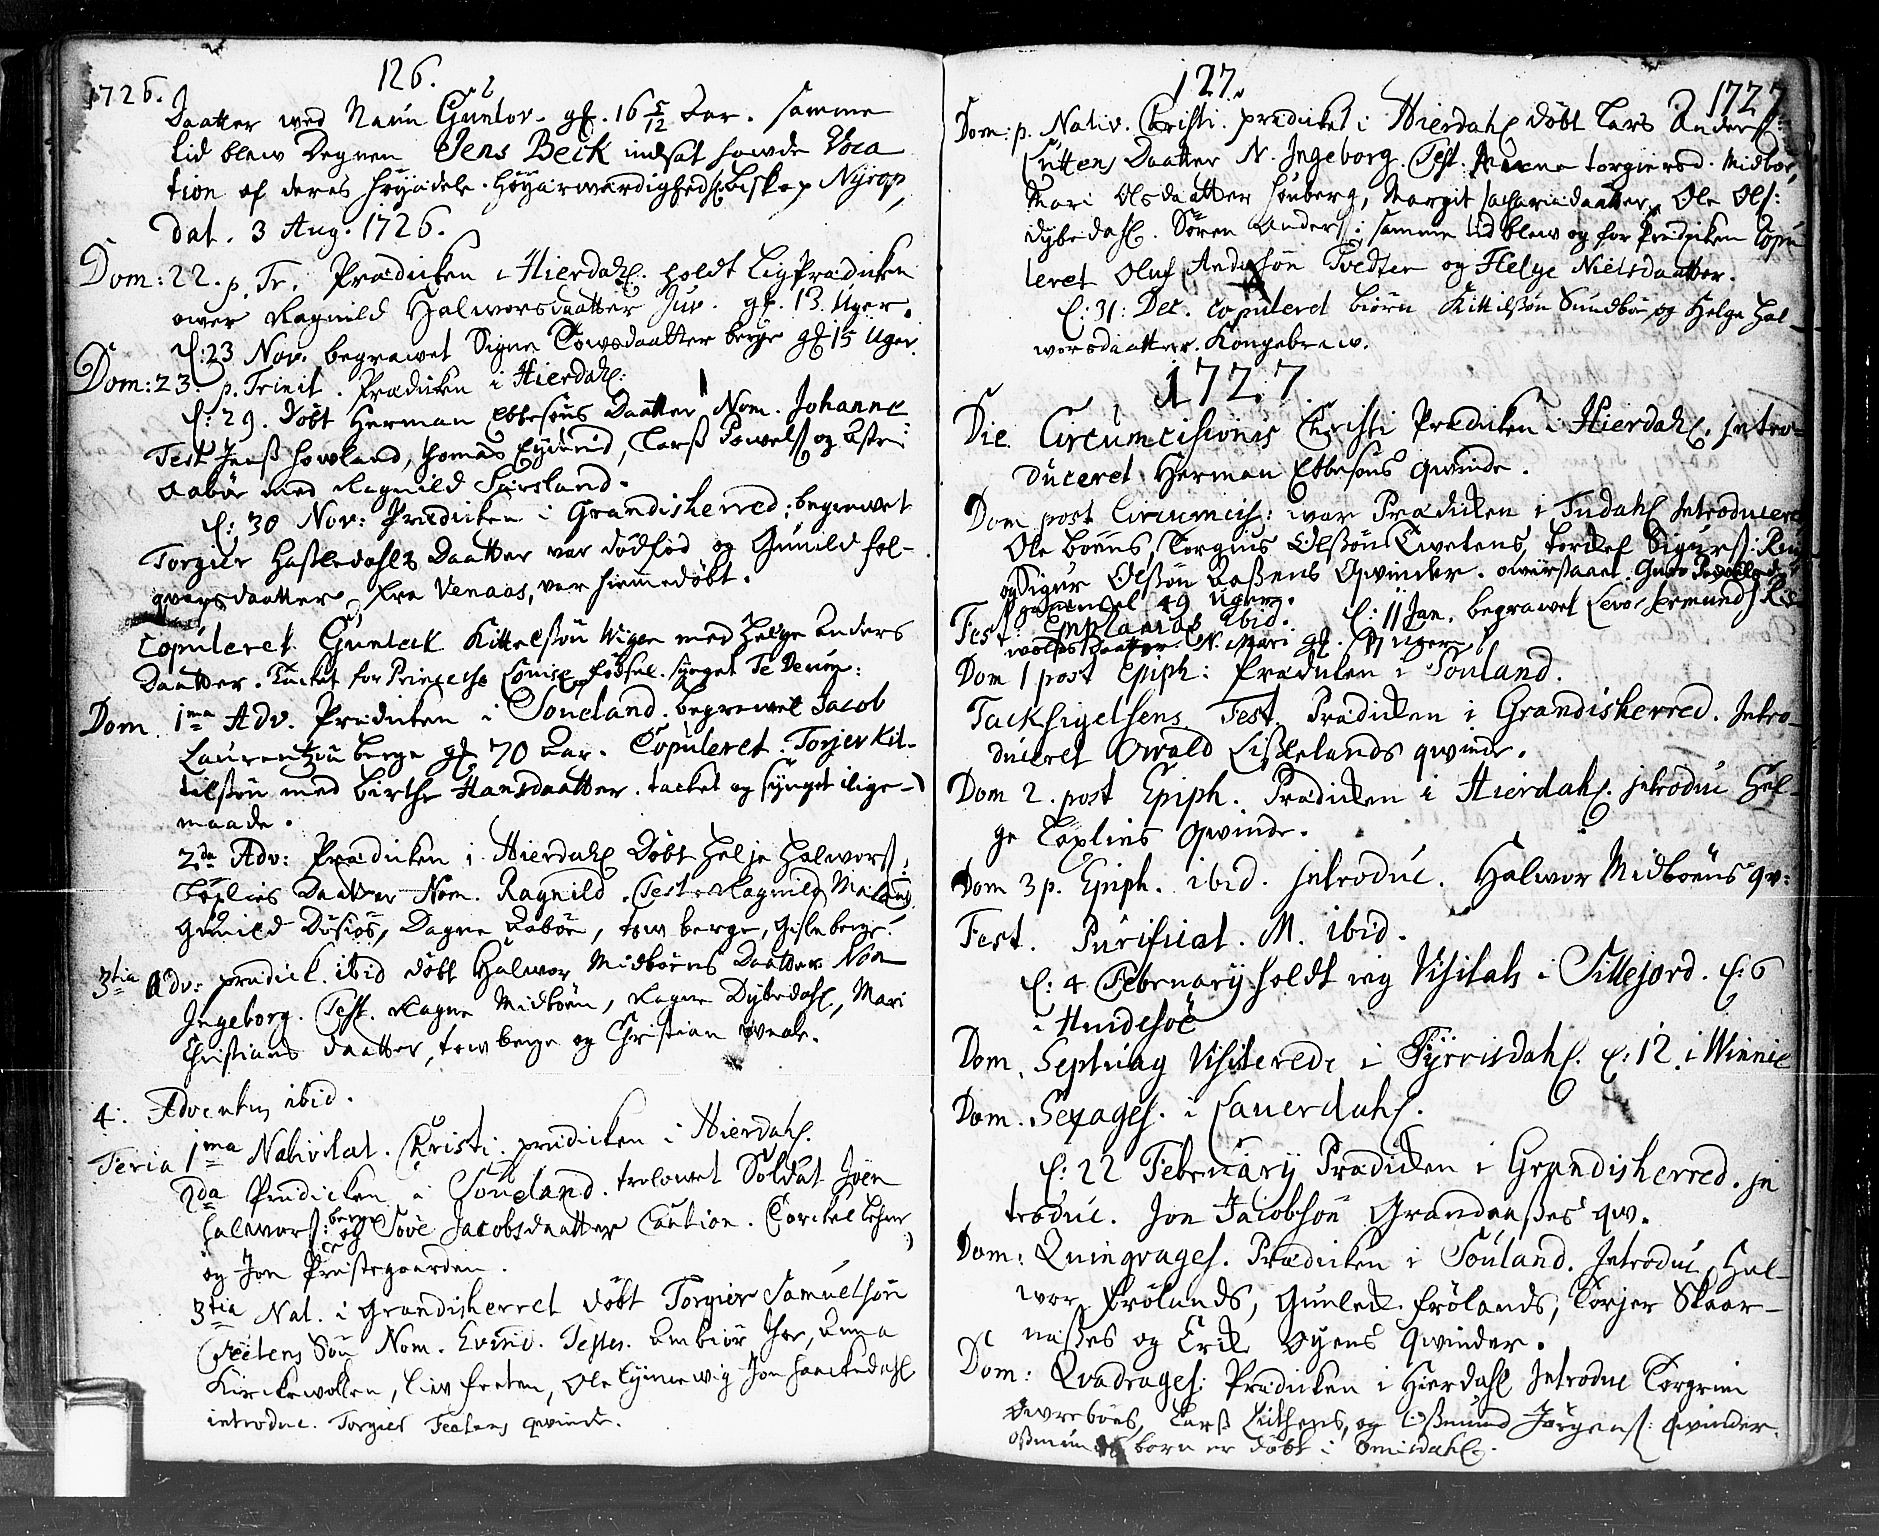 126.
1726.
Daatter wed Nafn Gunlov. gl. 16 5/12 Aar. samme
tid blew Degnen Jens Beck indsat hawde Voca
tion af deres Høyædele Høyærwærdighed Biskop Nyrop,
dat. 3 Aug. 1726.
Dom: 22. p. Tr. Prædicken i Hierdahl. holdt Lig Prædicken
ower Ragnild Halworsdaatter Juv. gl. 13. Uger.
d: 23 Nov. begrawet Signe Towsdaatter berge gl 15 Uger.
Dom: 23. p. Trinit. Prædicken i Hierdahl:
d: 29. døbt Herman Ebbesøns Daatter Nom. Johanne
Test Jens howland, Thomas Eydnid, Lars Powels og Astri
Aabøe med Ragnild Sørsland.
d: 30 Nov: Prædicken i Grandisherred: begrawet
Torgier Hasledahls Daatter var dødfød og Gunild Hol-
qvarsdaatter fra Venaas, var hiemmedøbt.
Copuleret Gunleik Kittelsøn Wigen med Helge Anders
Daatter. Tacket for Princesse Louise fødsel. synget Te Deum:
Dom. 1ma Adv. Prædicken i Souland. begrawet Jacob
Laurentzøn berge gl 70 Aar. Copuleret. Torjer Kit-
tilsøn med Birthe Hansdaatter. tacket og synget ilige-
maade.
2da Adv: Prædicken i Hierdahl Døbt Helje Halwors:
Løxlies Daatter Nom. Ragnild. Test. Ragnild Maland
Gunild Dusiøs, Dagne Aabøe, tow berge, Gisle berge.
3tia Adv: prædick. ibid døbt Halwor Midbøens Daatter Nom
Ingeborg. Test. Ragne Midbøen, Ragne Dybedahl, Mari
Christians daatter, tow berge og Christian
4. Adventus ibid.
Feria 1ma Nativitat. Christi: prædicken i Hierdahl.
2da Prædicken i Souland. trolowet Soldat Joen
Halwors: berge og Tove Jacobsdaatter Caution. Torckel
og Jon Præstegaarden.
3tia Nat. i Grandisherret døbt Torgier Samuelsøn
Feetens Søn Nom. Evind. Testes. Anbiør Aase, Anna
Kirckewollen, Liw freten, Ole Lymewig Jon haackedahl
introduc. Torgier Feetens qwinde.
127.
1727
Dom: p. Nativ. Christi. prædicket i Hierdahl døbt Lars Anders:
Luttens Daatter N. Ingeborg. Test. Marne torgiersd. Midbøe,
Mari Olsdaatter Lønberg, Margit sachariadaatter, Ole Ols:
dybedahl. Søren Anders: samme tid blew og for Prædicken Copu
leret Oluf Andersøn Tvedten og Helge Nielsdaatter.
d: 31: Dec. copulerd Biørn Kittilsøn Sundbøe og Helge Hal-
worsdaatter. Kongebrew.
1727.
Die Circumcisionis Christi Prædicken i Hierdahl. Intro-
duceret Herman Ebbesøns qwinde.
Dom post Circumcis: war Prædicken i Tudahl Introduceret
Ole Bøens, Torgius Olssøn Twetens, torckel Sigurs:
og Sigur Olssøn Aasens Qwinder.
gammel 49 Uger.
Fest Epiphanias ibid. d: 11 Jan. begrawet
wolds Daatter N. Mari gl. Uger
Dom 1 post Epiph: Prædicken i Souland.
Tacksigelsens Fest. Prædicken i Grandisherred. Intro-
duceret Owald Lislelands qwinde.
Dom 2. post Epiph. Prædicken i Hierdahl. jntroduc Hel-
ge Løxlies qwinde.
Dom 3 p. Epiph. ibid. jntroduc. Halwor Midbøens qv:
Fest. Purificat. M. ibid.
d: 4 Februarij holdt ieg Visitats i Sillejord. d: 6
i Huidesøe
Dom. Septuag Visiterede i Tyrrisdahl. d: 12. i Winnie
Dom. Sexages. i Lauerdahl.
d: 22 Februarij Prædicken i Grandisherred. jn
troduc. Jon Jacobsøn Grandaases qw.
Dom: Quinqvages. Prædicken i Souland. Introduc Hal-
wor Frølands, Gunleck frølands, Torjer Skaar-
nasses og Erick Øyens qwinder.
Dom: Qvadrages: Prædicken i Hierdahl Introduc Torgrim
Øwrebøes, Lars Luthens, og Osmund Jørgens: Qwinder.
Osmunds børn er døbt i Omisdahl.